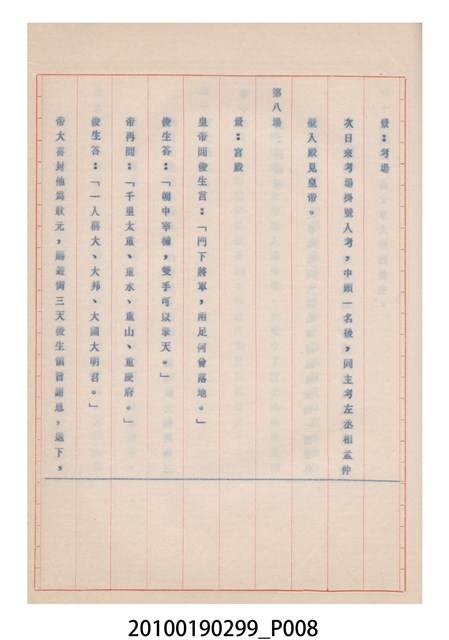 景：考場
次日來考場掛號入考，中頭一名後，同主考左丞相孟仲
儀入殿見皇帝。
第八場
景：宮殿
皇帝面俊生言：「門下將軍，兩足何曾落地。」
俊生答：「朝中宰輔，雙手可以擎天。」
帝再問：「千里太重、重水、重山、重慶府。」
俊生答：「一人稱大、大邦、大國大明君。」
帝大喜封他為狀元，賜遊街三天俊生領旨謝恩，退下，
20100190299_P008